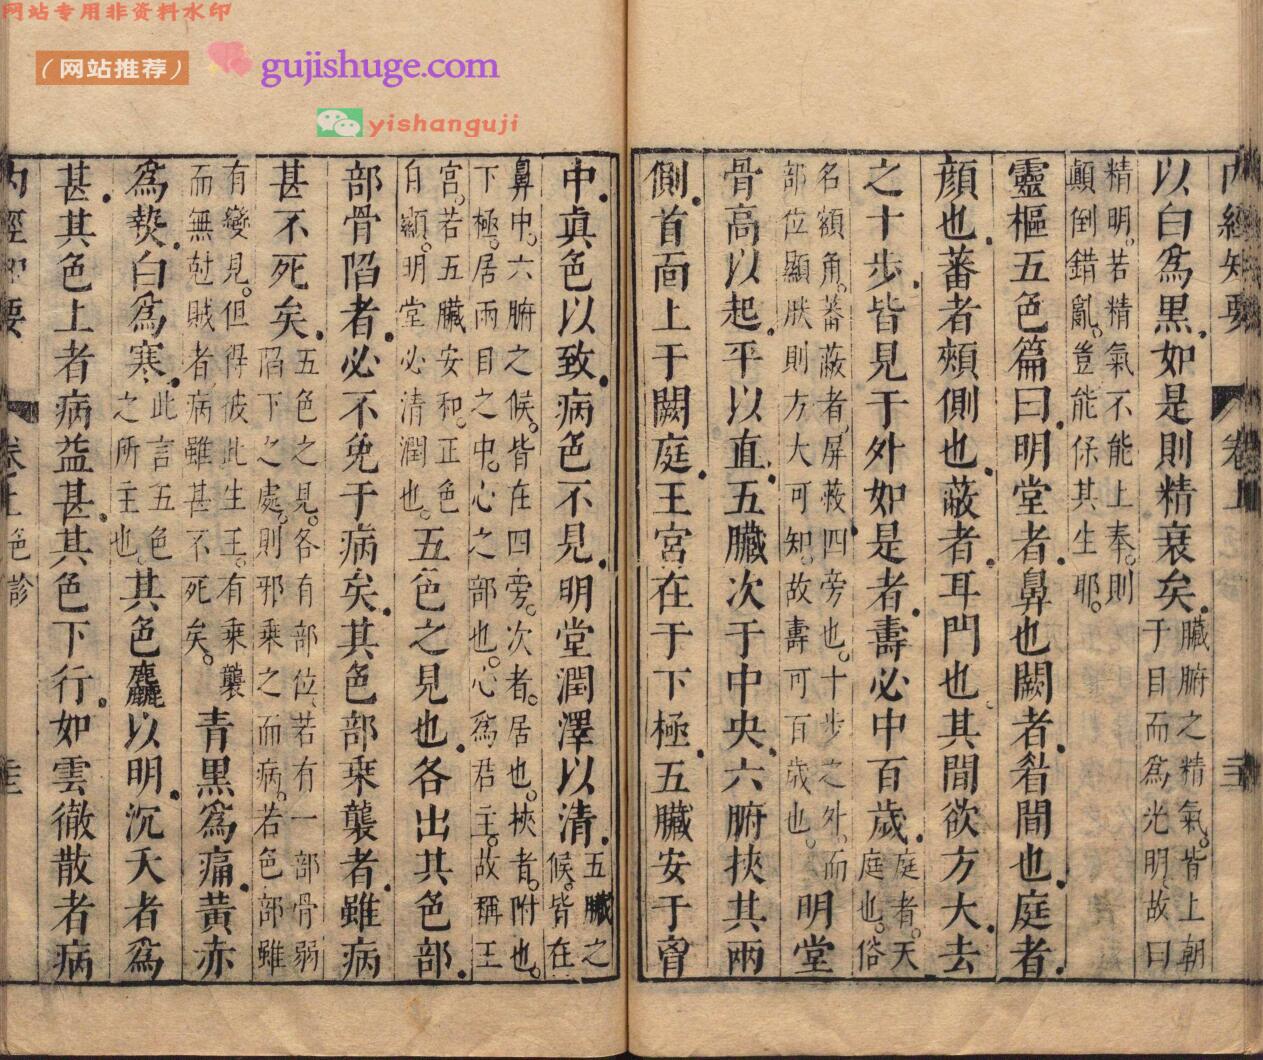 网站专用非资料水印
（网站推荐）
gujishuge.com
yishanguji
內經知要 卷上
以白爲黑。如是則精衰矣。
臟腑之精氣。皆上朝
于目而爲光明。故曰
精明。若精氣不能上奉。則
顚倒錯亂。豈能保其生耶。
靈樞五色篇曰。明堂者。鼻也闕者。眉間也。庭者。
顔也。蕃者頰側也。蔽者。耳門也。其間欲方大。去
之十步。皆見于外如是者。壽必中百歲。
庭者。天
庭也。俗
名額角。蕃蔽者。屏蔽四旁也。十步之外。而
部位顯肰則方大可知。故壽可百歲也。
明堂
骨高以起。平以直。五臟次于中央。六腑挾其兩
側。首面上于闕庭。王宮在于下極。五臟安于胷
中。眞色以致。病色不見。明堂潤澤以清。
五臟之
候。皆在
鼻中。六腑之候。皆在四旁。次者。居也。挾者。附也。
下極。居兩目之中。心之部也。心爲君主。故稱王
宮。若五臟安和。正色
自顯。明堂必清潤也。
五色之見也。各出其色部。
部骨陷者。必不免于病矣。其色部乗襲者。雖病
甚不死矣。
五色之見。各有部位。若有一部骨弱
陷下之處。則邪乘之而病。若色部雖
有變見。但得彼此生王。有乘襲
而無尅賊者。病雖甚不死矣。
青黑爲痛。黃赤
爲熱。白爲寒。
此言五色
之所主也。
其色麤以明。沉夭者爲
甚。其色上者病益甚。其色下行。如雲徹散者病
內經知要 卷上 色診